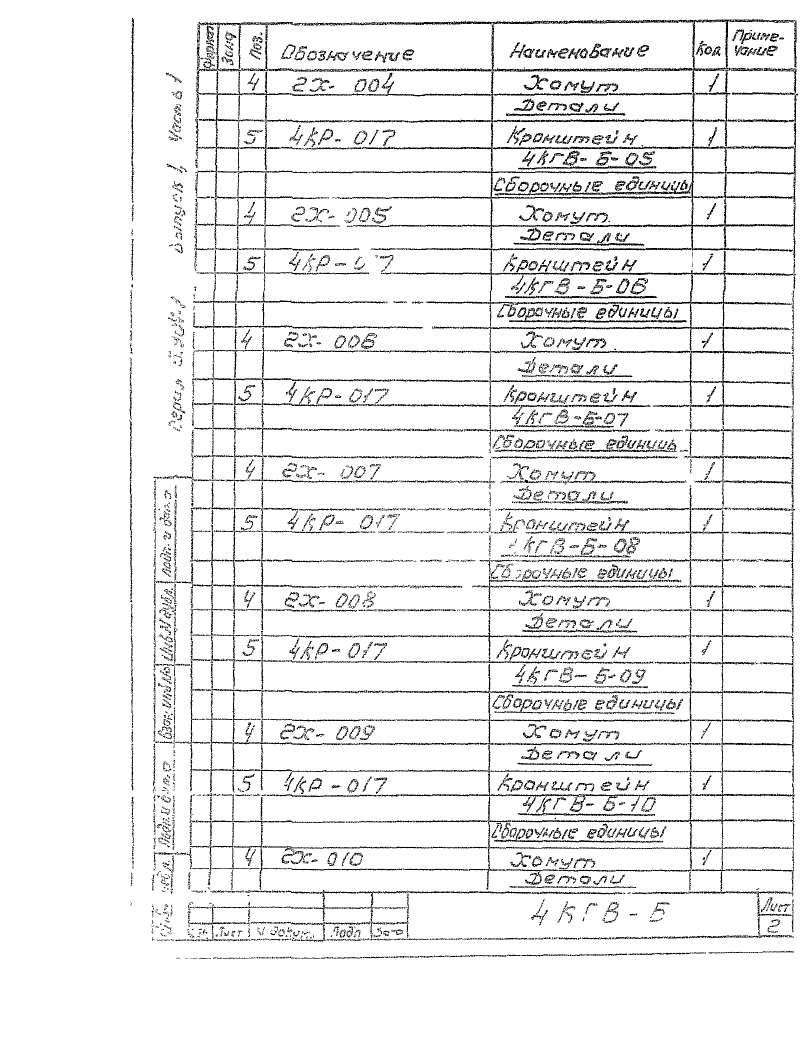 Формат Зона Поз. Обозначение Наименование Кол. Приме-чание
4 2Х- 004 Хомут 1
Детали
5 4КР- 017 Кронштейн 1
4КГВ-Б-05
Сборочные единицы
4 2Х- 005 Хомут 1
Детали
5 4КР- 017 Кронштейн 1
4КГВ-Б-06
Сборочные единицы
4 2Х- 006 Хомут 1
Детали
5 4КР- 017 Кронштейн 1
4КГВ-Б-07
Сборочные единицы
4 2Х- 007 Хомут 1
Детали
5 4КР- 017 Кронштейн 1
4КГВ-Б-08
Сборочные единицы
4 2Х- 008 Хомут 1
Детали
5 4КР-017 Кронштейн 1
4КГВ-Б-09
Сборочные единицы
4 2Х- 009 Хомут 1
Детали
5 4КР-017 Кронштейн 1
4КГВ-Б-10
Сборочные единицы
4 2Х-010 Хомут 1
Детали
4КГВ-Б
Лист
2
Изм. Лист № докум. Подп. Дата
Серия Выпуск 1 Часть 1
Подп. и дата
Инв.№ дубл.
Взам. инв.№
Подп. и дата